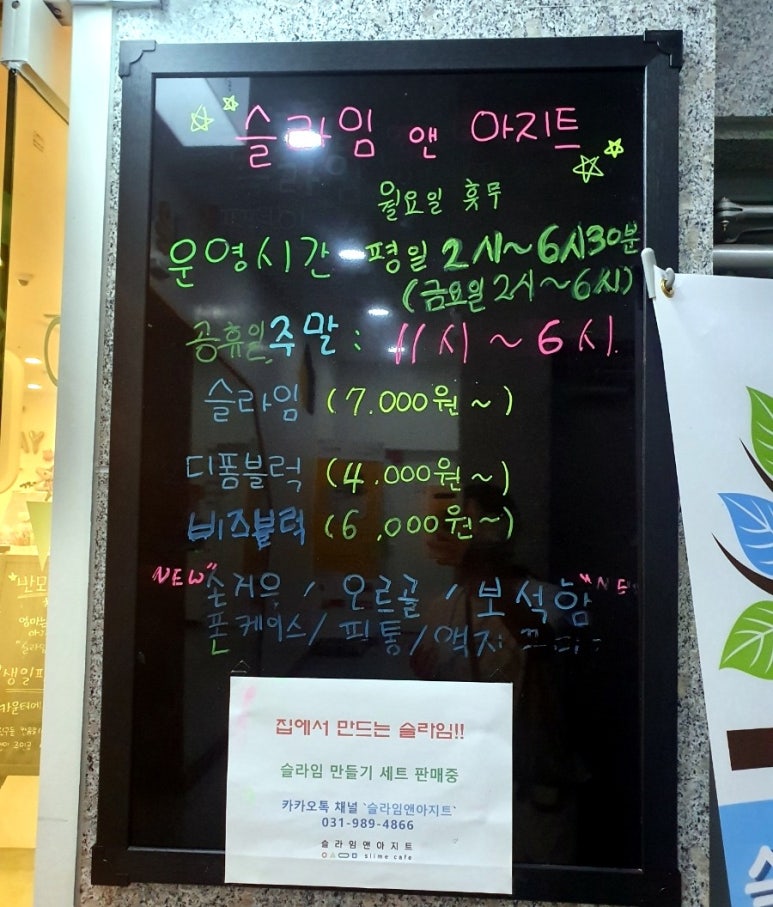 슬라임 앤 아지트
월요일 휴무
운영시간 - 평일 2시~6시30분
(금요일 2시~6시)
공휴일, 주말 : 11시~6시.
슬라임 (7.000원~)
디폼블럭 (4.000원~)
비즈블럭 (6.000원~)
"NEW" 손거울 / 오르골 / 보석함
폰케이스/필통/액자
집에서 만드는 슬라임!!
슬라임 만들기 세트 판매중
카카오톡 채널 `슬라임앤아지트`
031-989-4866
슬라임앤아지트
slime cafe